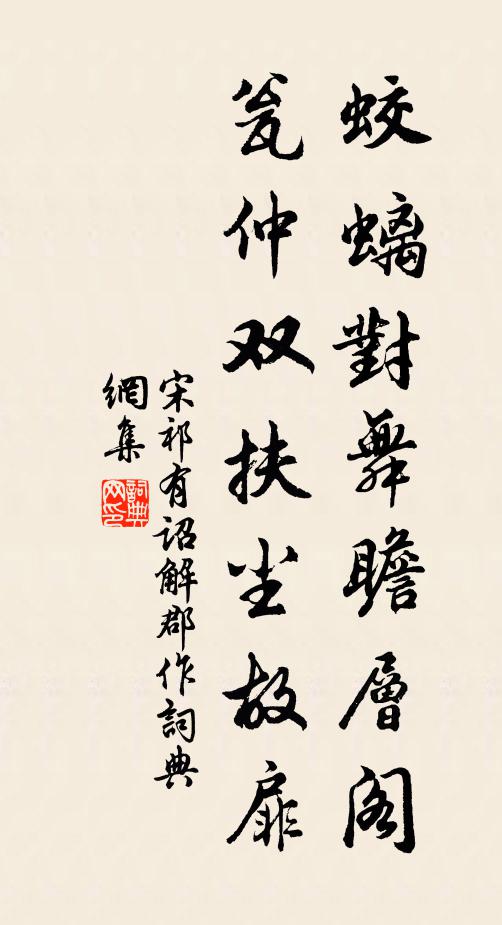 蛟螭對舞瞻層阁
瓮仲双扶坐故扉
宋祁有詔解郡作詞典
網集
詞典网印